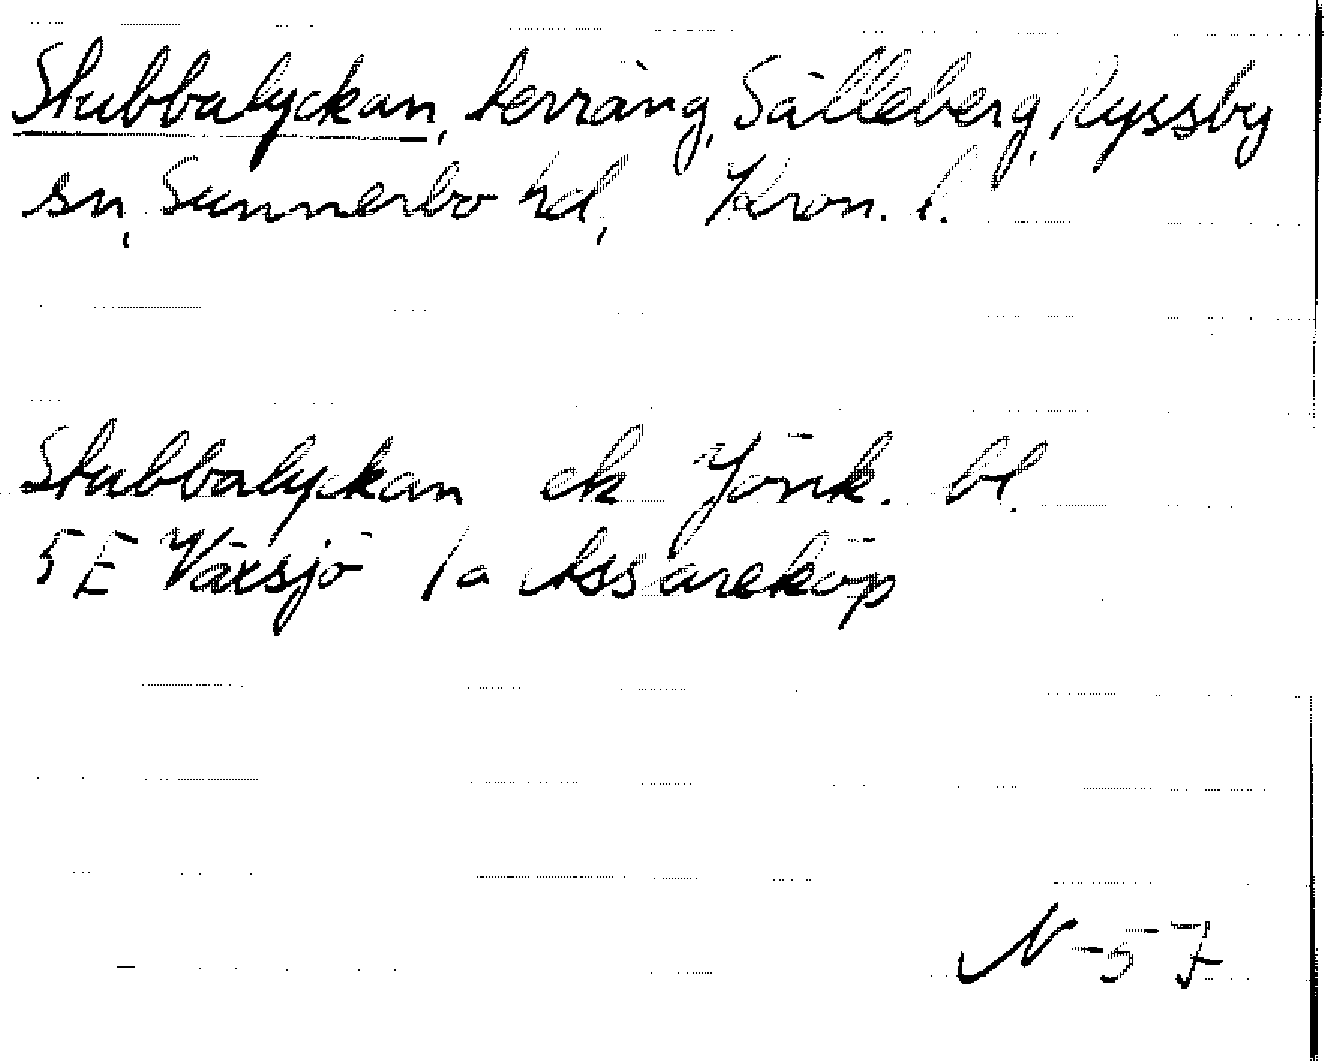 Stubbalyckan, terräng, Sälleberg, Ryssby
sn, Sunnerbo hd, Kron. l.
Stubbalyckan ek Jönk. bl.
5E Växsjö 1a Assareköp
N-57